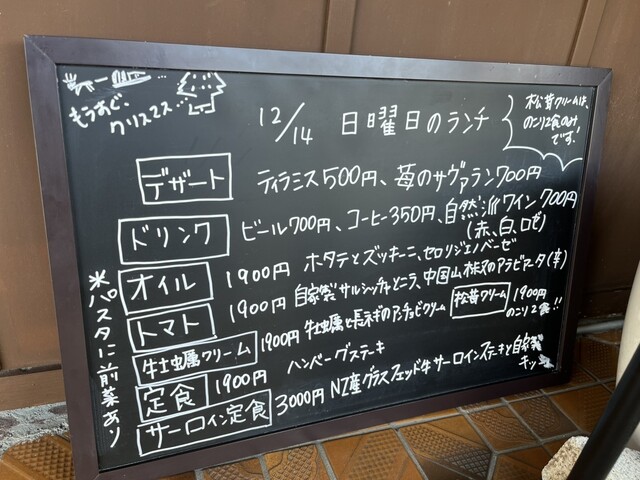 もうすぐ、
クリスマス…
12/14 日曜日のランチ
松茸クリームは、
のこり2食のみ
です!
デザート ティラミス500円、苺のサヴァラン700円
ドリンク ビール700円、コーヒー350円、自然派ワイン700円
(赤、白、ロゼ)
オイル 1900円 ホタテとズッキーニ、セロリジェノベーゼ
トマト 1900円 自家製サルシッチャとニラ、中国山椒のアラビアータ(辛)
牡蠣クリーム 1900円 牡蠣と長ネギのアンチョビクリーム
松茸クリーム 1900円
のこり2食!!
定食 1900円 ハンバーグステーキ
サーロイン定食 3000円 NZ産グラスフェッド牛サーロインステーキと自家製
キッ
※パスタに前菜あり